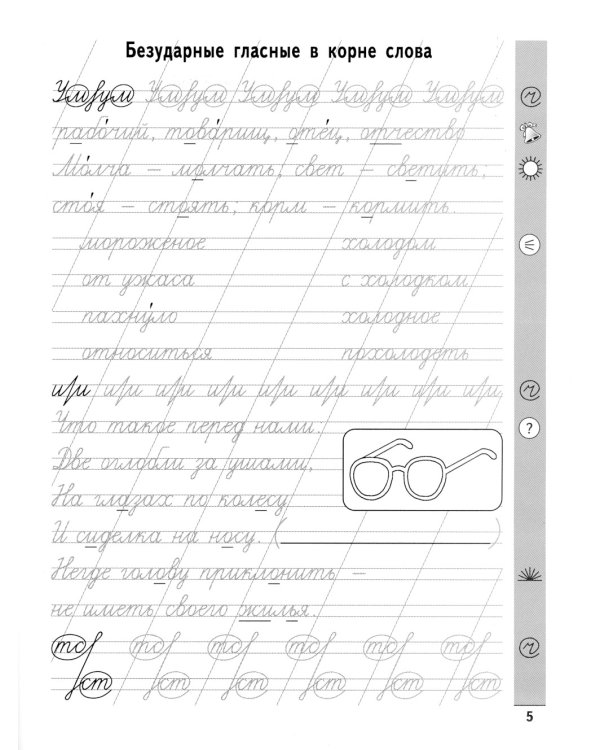 Безударные гласные в корне слова
Ум ум Ум ум Ум ум Ум ум Ум ум
рабо́чий, това́рищ, оте́ц, отчество
Мо́лча – молчать; свет – светить;
сто́я – стоять; корм – кормить.
мороженое холодом
от ужаса с холодком
пахну́ло холодное
относиться похолодеть
и/и и/и и/и и/и и/и и/и и/и и/и и/и
Что такое перед нами:
Две оглобли за ушами,
На глазах по колесу
И сиделка на носу. ( )
?
Негде голову приклонить –
не иметь своего жилья.
то то то то то то
ст ст ст ст ст ст
5